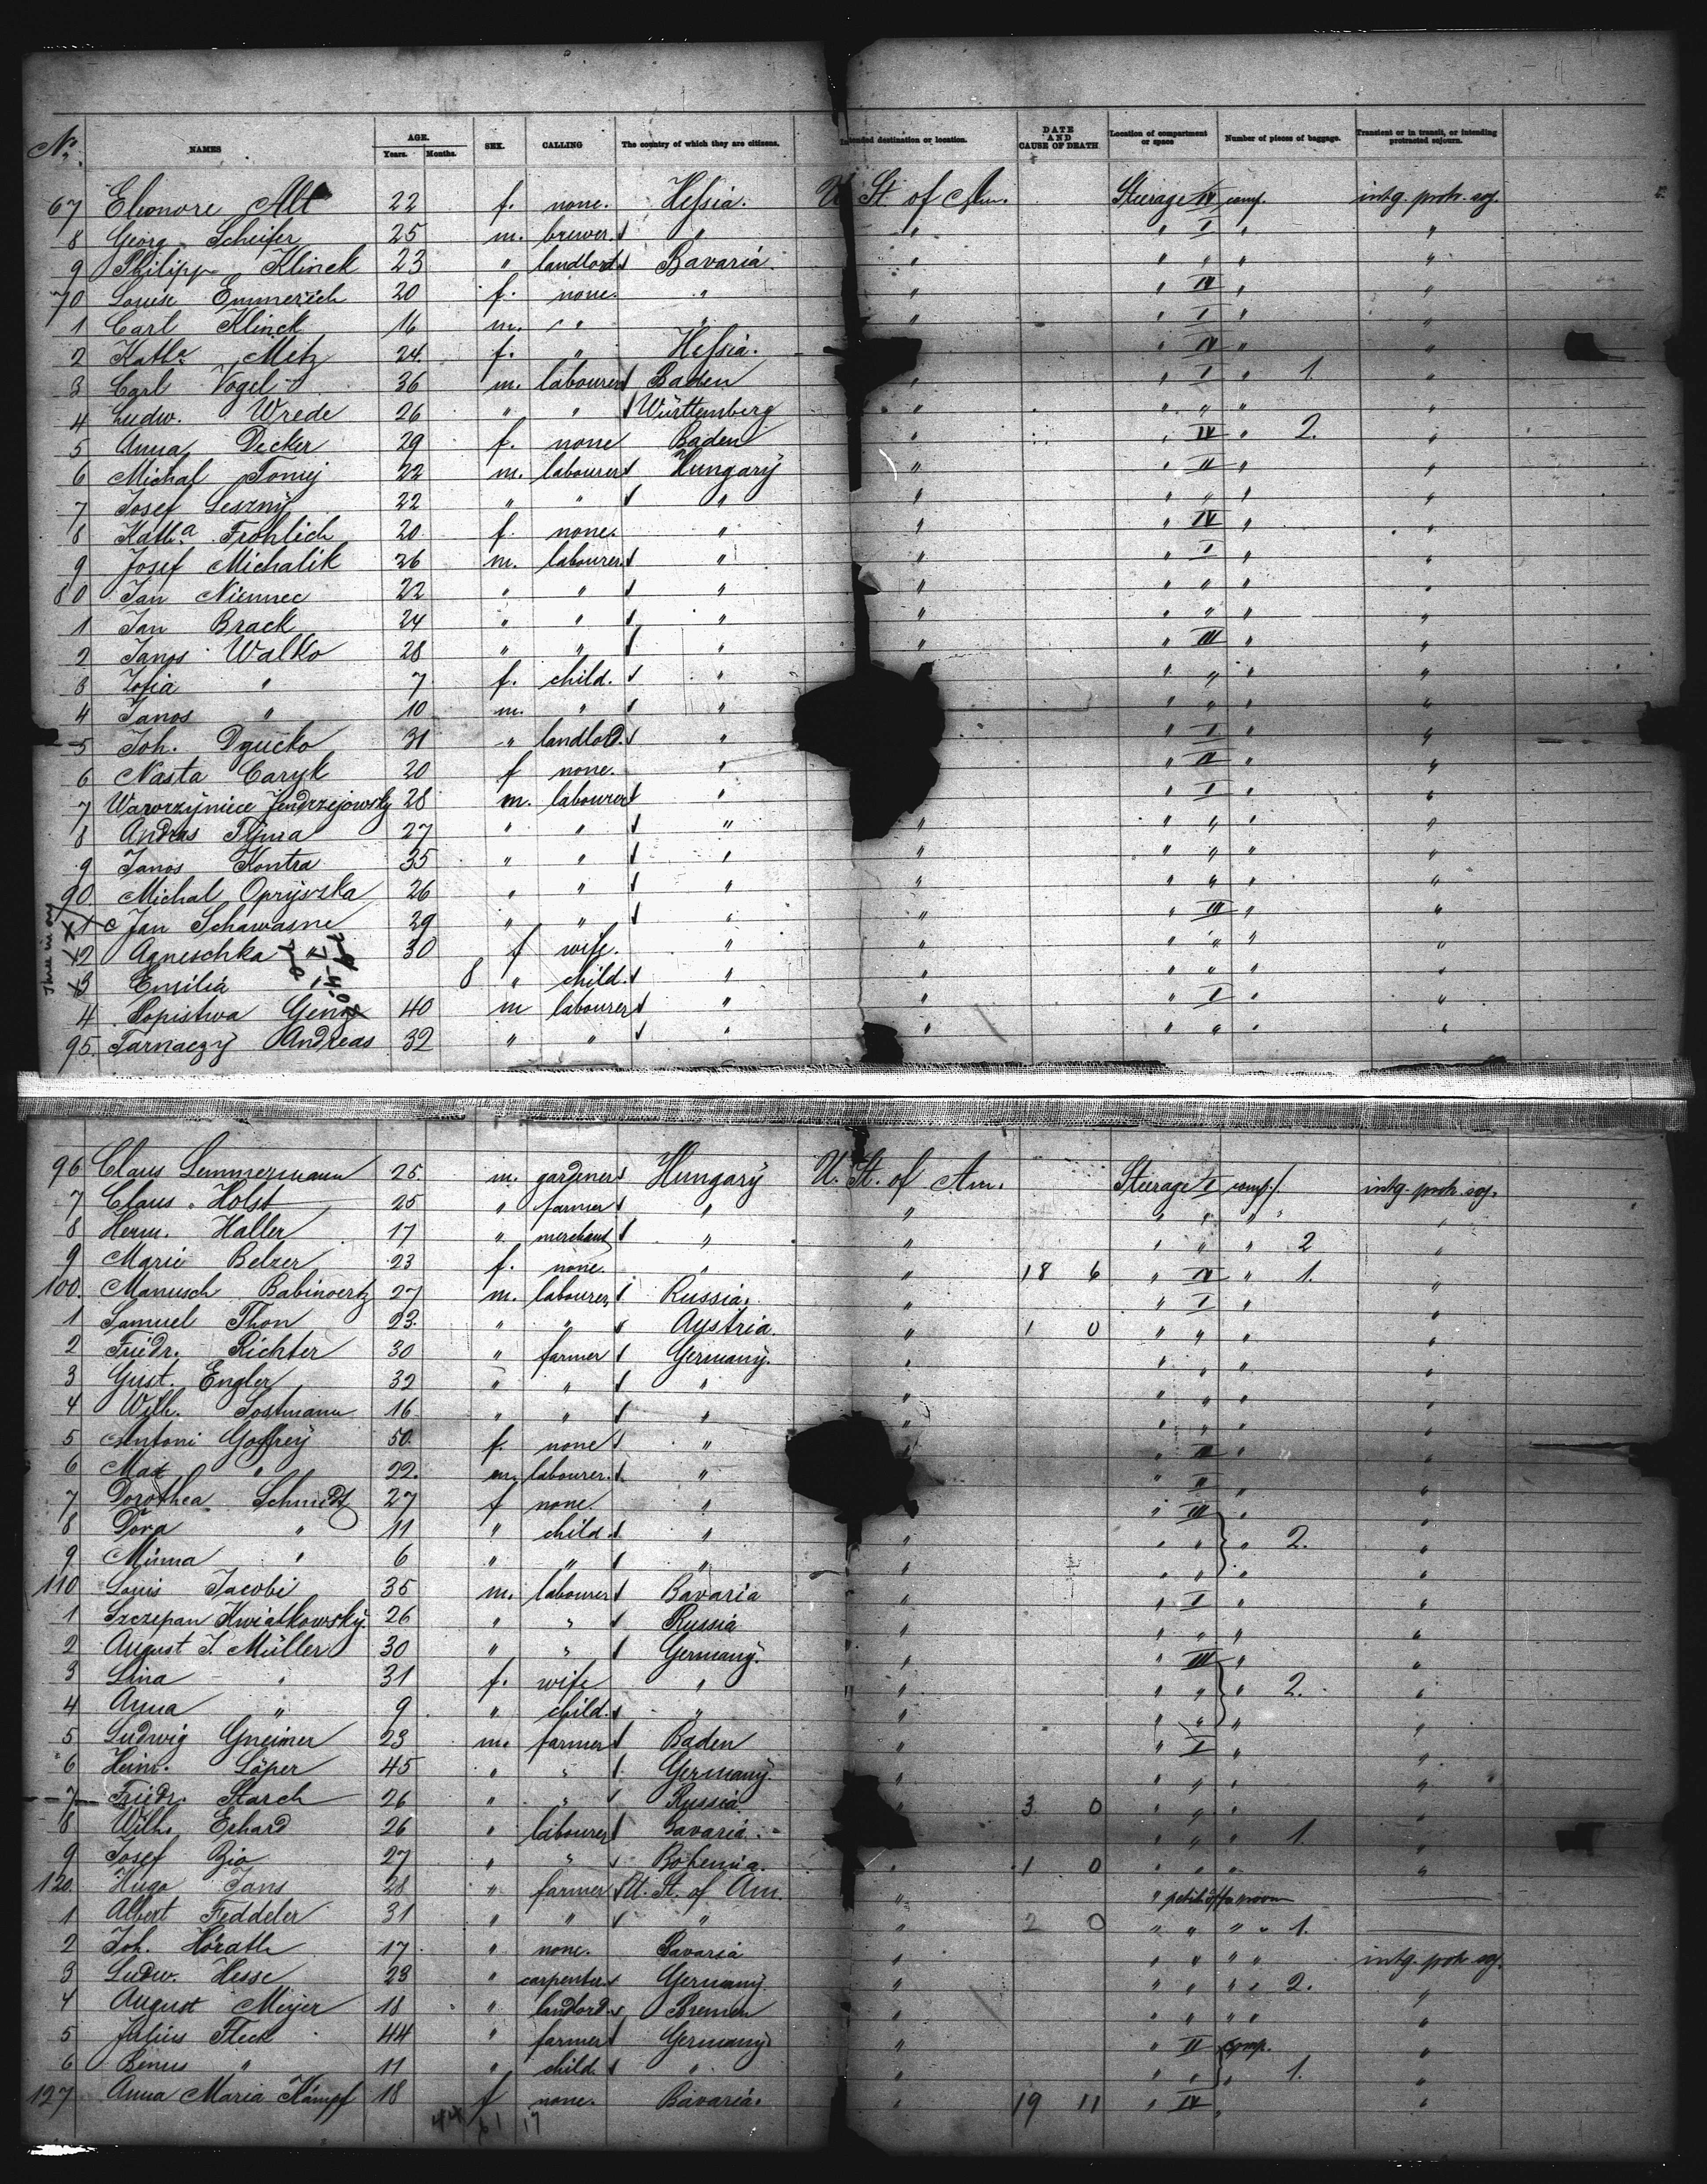 No. NAMES AGE. Years. Months. SEX. CALLING The country of which they are citizens. Intended destination or location. DATE AND CAUSE OF DEATH. Location of compartment or space Number of pieces of baggage. Transient or in transit, or intending protracted sojourn.
67 Eleonore Alt 22 f. none. Hessia. U. St. of Am. Steerage IV comp. intg. protr. soj.
8 Georg Scheifer 25 m. brewer. " " " I " "
9 Philipp Klinck 23 " landlord. Bavaria. " " " " "
70 Louise Emmerich 20 f. none. " " " IV " "
1 Carl Klinck 16 m. " " " " I " "
2 Katha. Metz 24. f. " Hessia. " " IV " "
3 Carl Vogel 36 m. labourer Baden " " I " 1. "
4 Ludw. Wrede 26 " " Württemberg " " " " "
5 Anna Decker 29 f. none Baden " " IV " 2. "
6 Michal Tomij 22 m. labourer Hungary " " II " "
7 Josef Leszny 22 " " " " " " " "
8 Katha. Frohlich 20. f. none. " " " IV " "
9 Josef Michalik 26 m. labourer. " " " I " "
80 Jan Niemiec 22 " " " " " " " "
1 Jan Brack 24 " " " " " " " "
2 Janos Walko 28 " " " " " III " "
3 Zofia " 7 f. child. " " " " " "
4 Janos " 10 m. " " " " " " "
5 Joh. Dgucko 31 " landlord. " " " I " "
6 Nasta Caryk 20 f none. " " " IV " "
7 Wawrzyniece Jendrzejowsky 28 m. labourer " " " I " "
8 Andras Tijma 27 " " " " " " " "
9 Janos Kontra 35 " " " " " " " "
90. Michal Opryszka 26 " " " " " " " "
X1 Jan Schawasne 29 " " " " " III " "
X2 Agneschka " 30 f wife. " " " " " "
X3 Emilia " 8 " child. " " " " " "
4 Popistwa Geng 40 m labourer " " " I " "
95. Tarnaczy Andreas 32 " " " " " " " "
96 Claus Lemmermann 25. m. gardener Hungary U. St. of Am. Steerage I comp. intg. protr. soj.
7 Claus Holst 25 " farmer " " " " " "
8 Herm. Haller 17 " merchant " " " " " 2 "
9 Marie Belzer 23 f. none. " " 18 6 " IV " 1. "
100. Manusch Babinoertz 27 m. labourer, Russia. " " I " "
1 Samuel Thon 23. " " Austria. " 1 0 " " " "
2 Friedr. Richter 30 " farmer Germany. " " " " "
3 Gust. Engler 32 " " " " " " " "
4 Wilh. Sostmann 16 " " " " " " " "
5 Antoni Goffrey 50. f. none " " " III " "
6 Max " 22. m. labourer. " " " II " "
7 Dorothea Schmidt 27 f none. " " " III " "
8 Dora " 11 " child. " " " " " 2. "
9 Minna " 6 " " " " " " " "
110 Louis Jacobi 35 m. labourer Bavaria " " I " "
1 Szczepan Kwiatkowsky. 26 " " Russia " " " " "
2 August J. Müller 30 " " Germany. " " III " "
3 Lina " 31 f. wife " " " " " 2. "
4 Anna " 9 " child. " " " " " "
5 Ludwig Gneimer 23 m. farmer Baden " " I " "
6 Heinr. Löper 45 " " Germany. " " " " "
7 Friedr. Starch 26 " " Russia. " 3 0 " " " "
8 Wilh. Erhard 26 " labourer Bavaria. " " " " 1. "
9 Josef Bio 27 " " Bohemia. " 1 0 " " " "
120. Hugo Jans 28 " farmer U. St. of Am. " "
1 Albert Feddeler 31 " " " " 2 0 " " " " 1.
2 Joh. Hörath 17 " none. Bavaria " " " " " intg. protr. soj.
3 Ludw. Hesse 23 " carpenter. Germany " " " " " 2. "
4 August Meyer 18 " landlord. Bremen " " " " " "
5 Julius Fleck 44 " farmer Germany " " II comp. "
6 Benus " 11 " child. " " " " " 1. "
127 Anna Maria Kämpf 18 f none. Bavaria. " 19 11 " IV " "
44 61 17